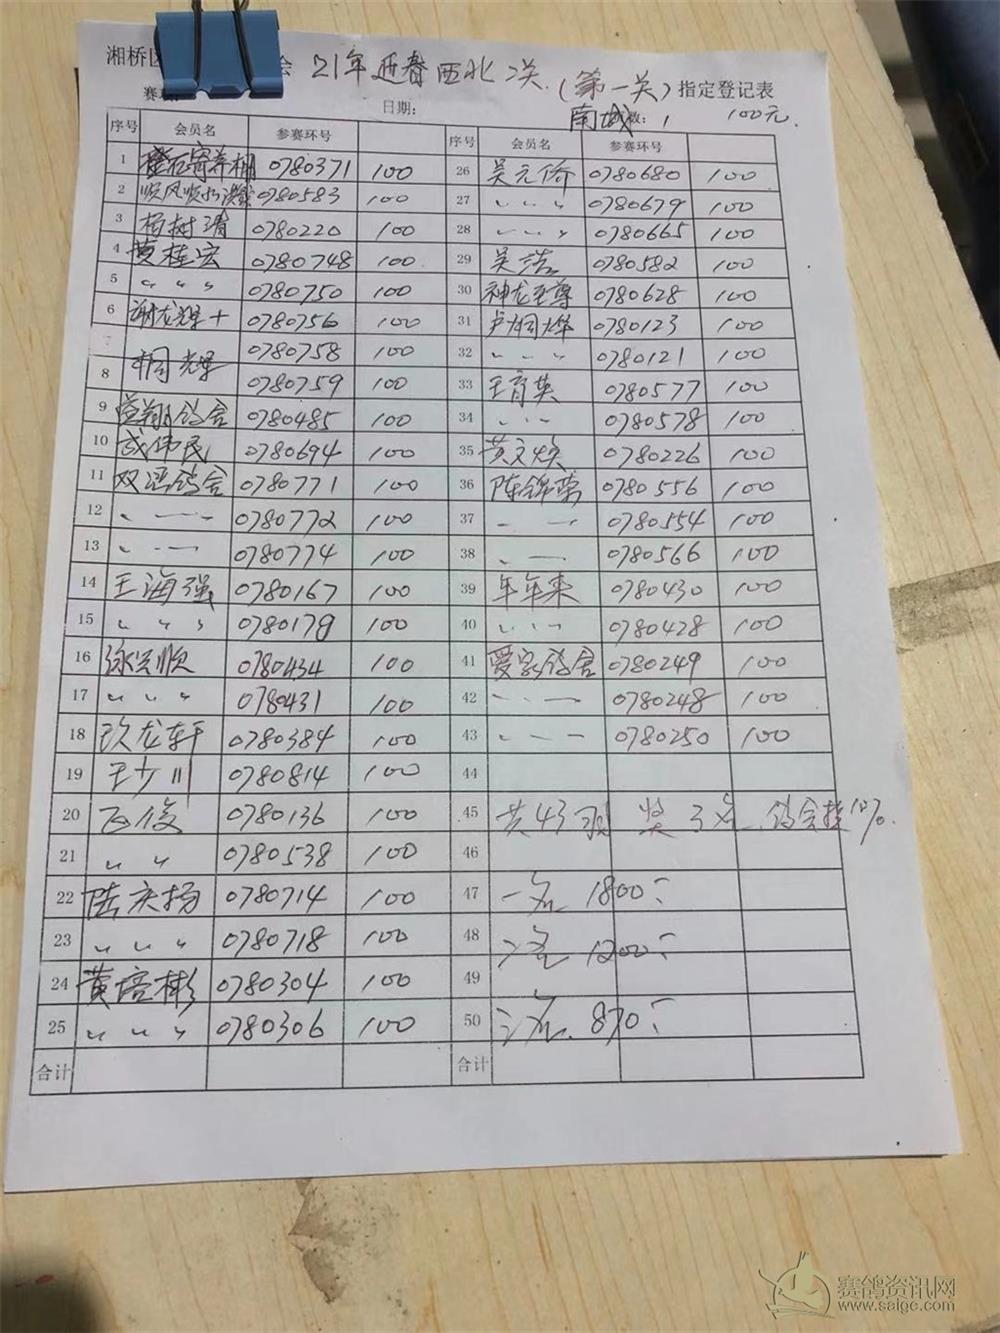 湘桥区 会 21年迎春西北二关(第一关)指定登记表
赛 日期: 南城 数: 1 100元
序号 会员名 参赛环号 序号 会员名 参赛环号
1 寄养棚 0780371 100 26 吴元侨 0780680 100
2 顺风顺水 0780583 100 27 〃 〃 〃 0780679 100
3 杨树清 0780220 100 28 〃 〃 〃 0780665 100
4 黄桂宏 0780748 100 29 吴浩 0780582 100
5 〃 〃 〃 0780750 100 30 神龙至尊 0780628 100
6 谢龙辉+ 0780756 100 31 卢炯烨 0780123 100
7 0780758 100 32 〃 〃 〃 0780121 100
8 桐辉 0780759 100 33 王育英 0780577 100
9 翔鸽舍 0780485 100 34 〃 〃 〃 0780578 100
10 成伟民 0780694 100 35 黄文焕 0780226 100
11 双语鸽舍 0780771 100 36 陈锦荣 0780556 100
12 〃 — — 0780772 100 37 — — 0780554 100
13 〃 — 0780774 100 38 〃 — 0780566 100
14 王海强 0780167 100 39 年年来 0780430 100
15 〃 〃 〃 0780179 100 40 〃 〃 〃 0780428 100
16 徐兴顺 0780434 100 41 爱家鸽舍 0780249 100
17 〃 〃 〃 0780431 100 42 〃 〃 — 0780248 100
18 玖龙轩 0780384 100 43 〃 〃 — 0780250 100
19 王少川 0780814 100 44
20 飞俊 0780136 100 45 共43羽 奖3名. 鸽会提10%.
21 〃 〃 0780538 100 46
22 陆庆扬 0780714 100 47 一名 1800元
23 〃 〃 〃 0780718 100 48 二名 1200元
24 黄培彬 0780304 100 49
25 〃 〃 〃 0780306 100 50 三名. 870元
合计 合计
赛鸽资讯网
www.saige.com